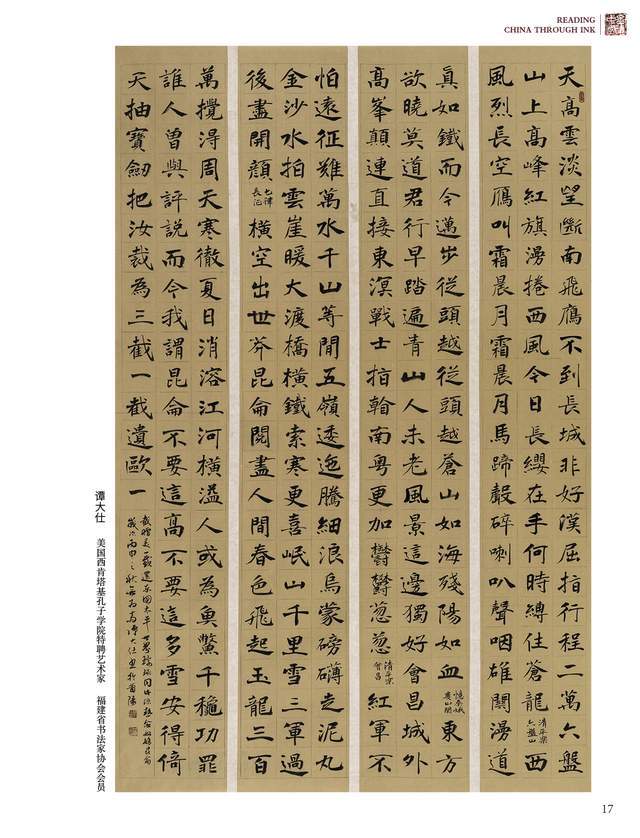 READING
CHINA THROUGH INK
天高雲淡望斷南飛鴈不到長城非好漢屈指行程二萬六盤
山上高峰紅旗漫捲西風今日長纓在手何時縛住蒼龍清平樂六盤山西
風烈長空鴈叫霜晨月霜晨月馬蹄聲碎喇叭聲咽雄關漫道
真如鐵而今邁步從頭越從頭越蒼山如海殘陽如血憶秦娥婁山關東方
欲曉莫道君行早踏遍青山人未老風景這邊獨好會昌城外
高峯顛連直接東溟戰士指看南粵更加鬱鬱蔥蔥清平樂會昌紅軍不
怕遠征難萬水千山等閒五嶺逶迤騰細浪烏蒙磅礴走泥丸
金沙水拍雲崖暖大渡橋橫鐵索寒更喜岷山千里雪三軍過
後盡開顏七律長征橫空出世莽昆侖閱盡人間春色飛起玉龍三百
萬攪得周天寒徹夏日消溶江河橫溢人或為魚鱉千穐功罪
誰人曾與評說而今我謂昆侖不要這高不要這多雪安得倚
天抽寶劍把汝裁為三截一截遺歐一
截贈美一截還東國太平世界環球同此涼熱念奴嬌昆侖
歲次丙申之秋譚大仕書於莆陽
谭大仕 美国西肯塔基孔子学院特聘艺术家 福建省书法家协会会员
17